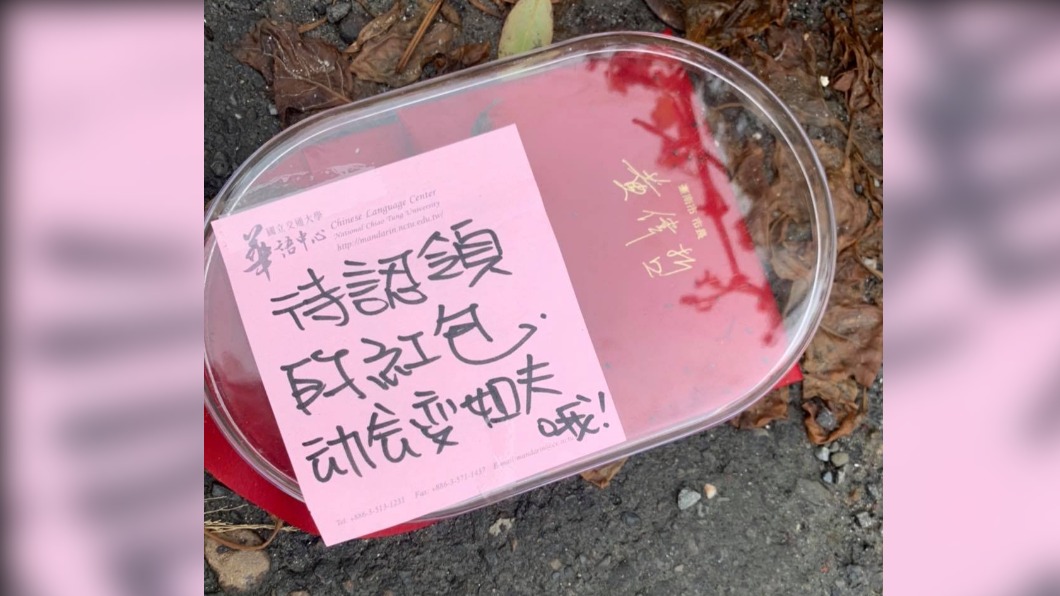 國立交通大學
華語中心
Chinese Language Center
National Chiao Tung University
http://mandarin.nctu.edu.tw/
待認領
的紅包
动会变姐夫
哦!
Tel: +886-3-513-1231 Fax: +886-3-571-1437 E-mail: mandarin@cc.nctu.edu.tw
市長
黃偉哲